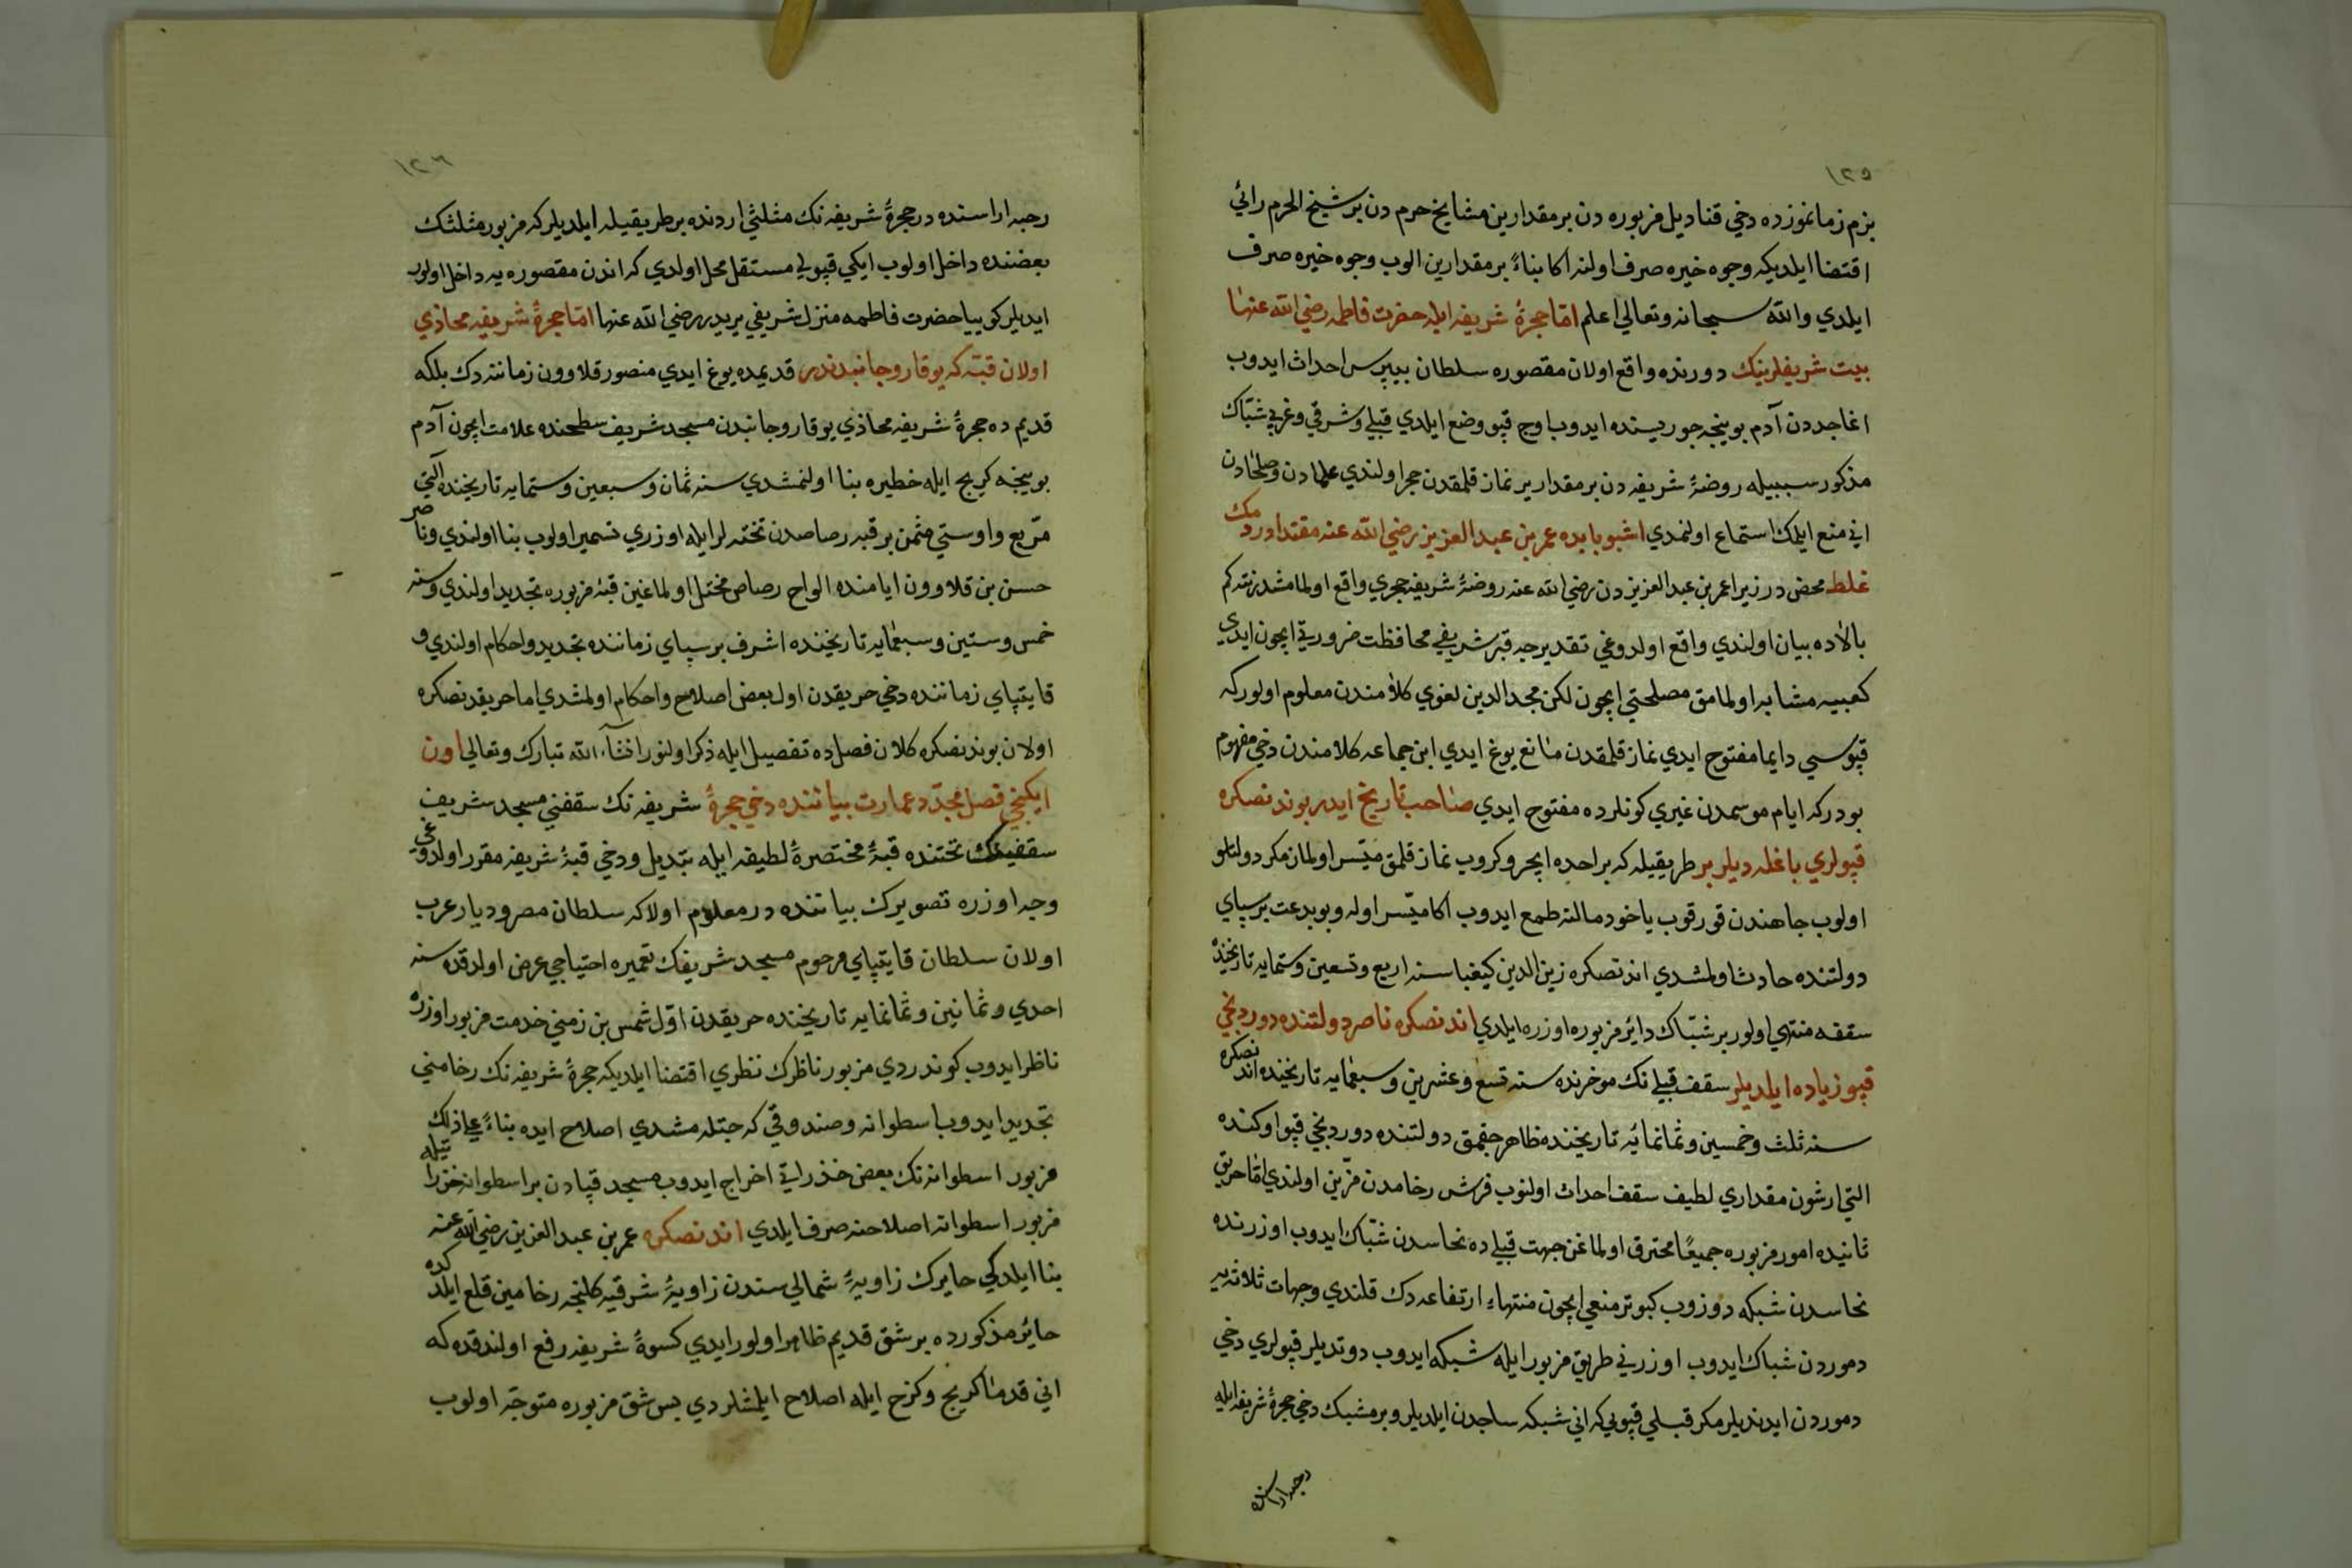 ١٢٥
بزم زمانموزده دخي قناديل مزبوره دن بر مقدارين مشايخ حرم دن بر شيخ الحرم رائي
اقتضا ايلديكه وجوه خيره صرف اولنه اكا بناءً بر مقدارين الوب وجوه خيره صرف
ايلدي والله سبحانه وتعالي اعلم امّا حجرۀ شريفه ايله حضرت فاطمه رضي الله عنها
بيت شريفلرينك دورنده واقع اولان مقصوره سلطان بيبرس احداث ايدوب
اغاجدن آدم بوينجه جوريسنده ايدوب اوج قپو وضع ايلدي قبلي وشرقي وغربي شبّاك
مذكور سببيله روضۀ شريفه دن بر مقدار ير نماز قلمقدن حجر اولندي علمادن وصلحادن
اني منع ايلمك استماع اولنمدي اشبو بابده عمر بن عبد العزيز رضي الله عنه مقتدا ورودمك
غلط محض در زيرا عمر بن عبد العزيز دن رضي الله عنه روضۀ شريفه حجري واقع اولمامشدر نته كم
بالاده بيان اولندي واقع اولدوغي تقديرجه قبر شريفي محافظت ضرورتي ايچون ايدي
كعبيه مشابه اولمامق مصلحتي ايچون لكن مجد الدين لغوي كلامندن معلوم اولور كه
قپوسي دايما مفتوح ايدي نماز قلمقدن مانع يوغ ايدي ابن جماعه كلامندن دخي مفهوم
بودر كه ايام موسمدن غيري كونلرده مفتوح ايدي صاحب تاريخ ايدر بوندنصكره
قپولري باغلديلر بر طريقيله كه بر احده ايچرو كروب نماز قلمق ميسّر اولماز مكر دولتلو
اولوب جاهندن قورقوب ياخود مالنه طمع ايدوب اكا ميسّر اوله وبو بدعت برسباي
دولتنده حادث اولمشدي اندنصكره زين الدين كيغبا سنه اربع وتسعين وستمايه تاريخنده
سقفه منتهي اولور بر شبّاك دائر مزبوره اوزره ايلدي اندنصكره ناصر دولتنده دوردنجي
قپو زياده ايلديلر سقف قبلي نك موخرنده سنه تسع وعشرين وسبعمايه تاريخنده اندنصكره
سنه ثلث وخمسين وثمانمائه تاريخنده ظاهر جقمق دولتنده دوردنجي قپو اوكنده
التي ارشون مقداري لطيف سقف احداث اولنوب فرش رخامدن مزّين اولندي امّا حريق
ثانيده امور مزبوره جميعًا محترق اولماغن جهت قبليده نحاسدن شبّاك ايدوب اوزرنده
نحاسدن شبكه دوزوب كبوتر منعي ايچون منتهاء ارتفاعه دك قلندي وجهات ثلاثه يه
دموردن شباك ايدوب اوزرني طريق مزبور ايله شبكه ايدوب دوتديلر قپولري دخي
دموردن ايدنديلر مكر قبلي قپويي كه اني شبكه ساجدن ايلديلر وبر مشبك دخي حجرۀ شريفه ايله
رحبه اراسنده
١٢٦
رحبه اراسنده در حجرۀ شريفه نك مثلثي اردنده بر طريقيله ايلديلر كه مزبور مثلثك
بعضنده داخل اولوب ايكي قپولي مستقل محل اولدي كه اندن مقصوره يه داخل اولور
ايديلر كوييا حضرت فاطمه منزل شريفي يريدر رضي الله عنها امّا حجرۀ شريفه محاذي
اولان قبّه كه يوقارو جانبدندر قديمده يوغ ايدي منصور قلاوون زماننه دك بلكه
قديم ده حجرۀ شريفه محاذي يوقارو جانبدن مسجد شريف سطحنده علامت ايچون آدم
بوينجه كريج ايله خطيره بنا اولنمشدي سنه ثمان وسبعين وستمايه تاريخنده آلتي
مرّبع واوستي مثمن بر قبه رصاصدن تخته لر ايله اوزري تسمير اولوب بنا اولندي وناصر
حسن بن قلاوون ايامنده الواح رصاص مختل اولماغين قبۀ مزبوره تجديد اولندي وسنه
خمس وستين وسبعمايه تاريخنده اشرف برسباي زماننده تجديد واحكام اولندي و
قايتباي زماننده دخي حريقدن اول بعض اصلاح واحكام اولمشدي اما حريقدنصكره
اولان بوندنصكره كلان فصلده تفصيل ايله ذكر اولنور انشآء الله تبارك وتعالي اون
ايكنجي فصل مجدّد عمارت بياننده دخي حجرۀ شريفه نك سقفني مسجد شريف
سقفينك تحتنده قبۀ مختصرۀ لطيفه ايله تبديل ودخي قبۀ شريفه مقرر اولدوغي
وجه اوزره تصويرك بياننده در معلوم اولا كه سلطان مصر وديار عرب
اولان سلطان قايتباي مرحوم مسجد شريفك تعميره احتياجي عرض اولدقده سنه
احدي وثمانين وثمانمايه تاريخنده حريقدن اوّل شمس بن زمني خدمت مزبور اوزره
ناظر ايدوب كوندردي مزبور ناظرك نظري اقتضا ايلديكه حجرۀ شريفه نك رخامني
تجديد ايدوب اسطوانه وصندوقي كه جتلمشدي اصلاح ايده بناءً علي ذلك
مزبور اسطوانه نك بعض خذراتي اخراج ايدوب مسجد قبادن بر اسطوانه خذراتيله
مزبور اسطوانه اصلاحنه صرف ايلدي اندنصكره عمر بن عبد العزيز رضي الله عنه
بنا ايلدكي حايرك زاويۀ شمالي سندن زاويۀ شرقيه كلنجه رخامين قلع ايلدكده
حائر مذكورده بر شق قديم ظاهر اولور ايدي كسوۀ شريفه رفع اولندقده كه
اني قدما كريج وكرح ايله اصلاح ايلمشلردي پس شق مزبوره متوجّه اولوب